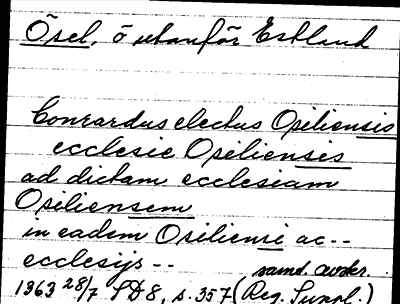 Ösel, ö utanför Estland
Conrardus electus Osiliensis
ecclesie Osiliensis
ad dictam ecclesiam
Osiliensem
in eadem Osiliensi ac--
ecclesijs--
samt. avskr.
1363 28/7 SD 8, s. 357 (Reg. Suppl.)